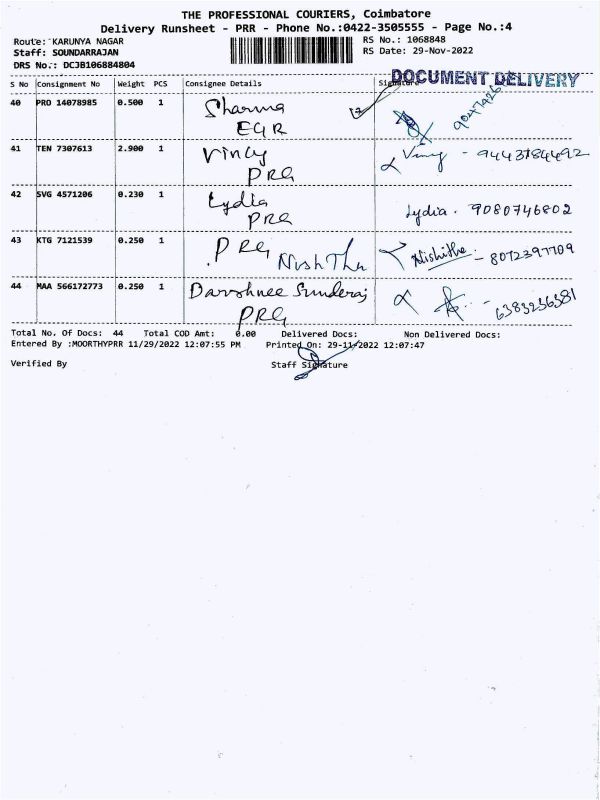 THE PROFESSIONAL COURIERS, Coimbatore
Delivery Runsheet - PRR - Phone No.:0422-3505555 - Page No.:4
Route: KARUNYA NAGAR RS No.: 1068848
Staff: SOUNDARRAJAN RS Date: 29-Nov-2022
DRS No.: DCJB106884804
DOCUMENT DELIVERY
S No Consignment No Weight PCS Consignee Details Signature
40 PRO 14078985 0.500 1 Sharma
EGR
41 TEN 7307613 2.900 1 Vincy Vincy - 9443784492
PRG
42 SVG 4571206 0.230 1 Lydia Lydia. 9080746802
PRG
43 KTG 7121539 0.250 1 PRG Nishitha Nishitha - 8072397709
44 MAA 566172773 0.250 1 Darshnee Sunderaj - 6383236381
PRG
Total No. Of Docs: 44 Total COD Amt: 0.00 Delivered Docs: Non Delivered Docs:
Entered By :MOORTHYPRR 11/29/2022 12:07:55 PM Printed On: 29-11-2022 12:07:47
Verified By Staff Signature